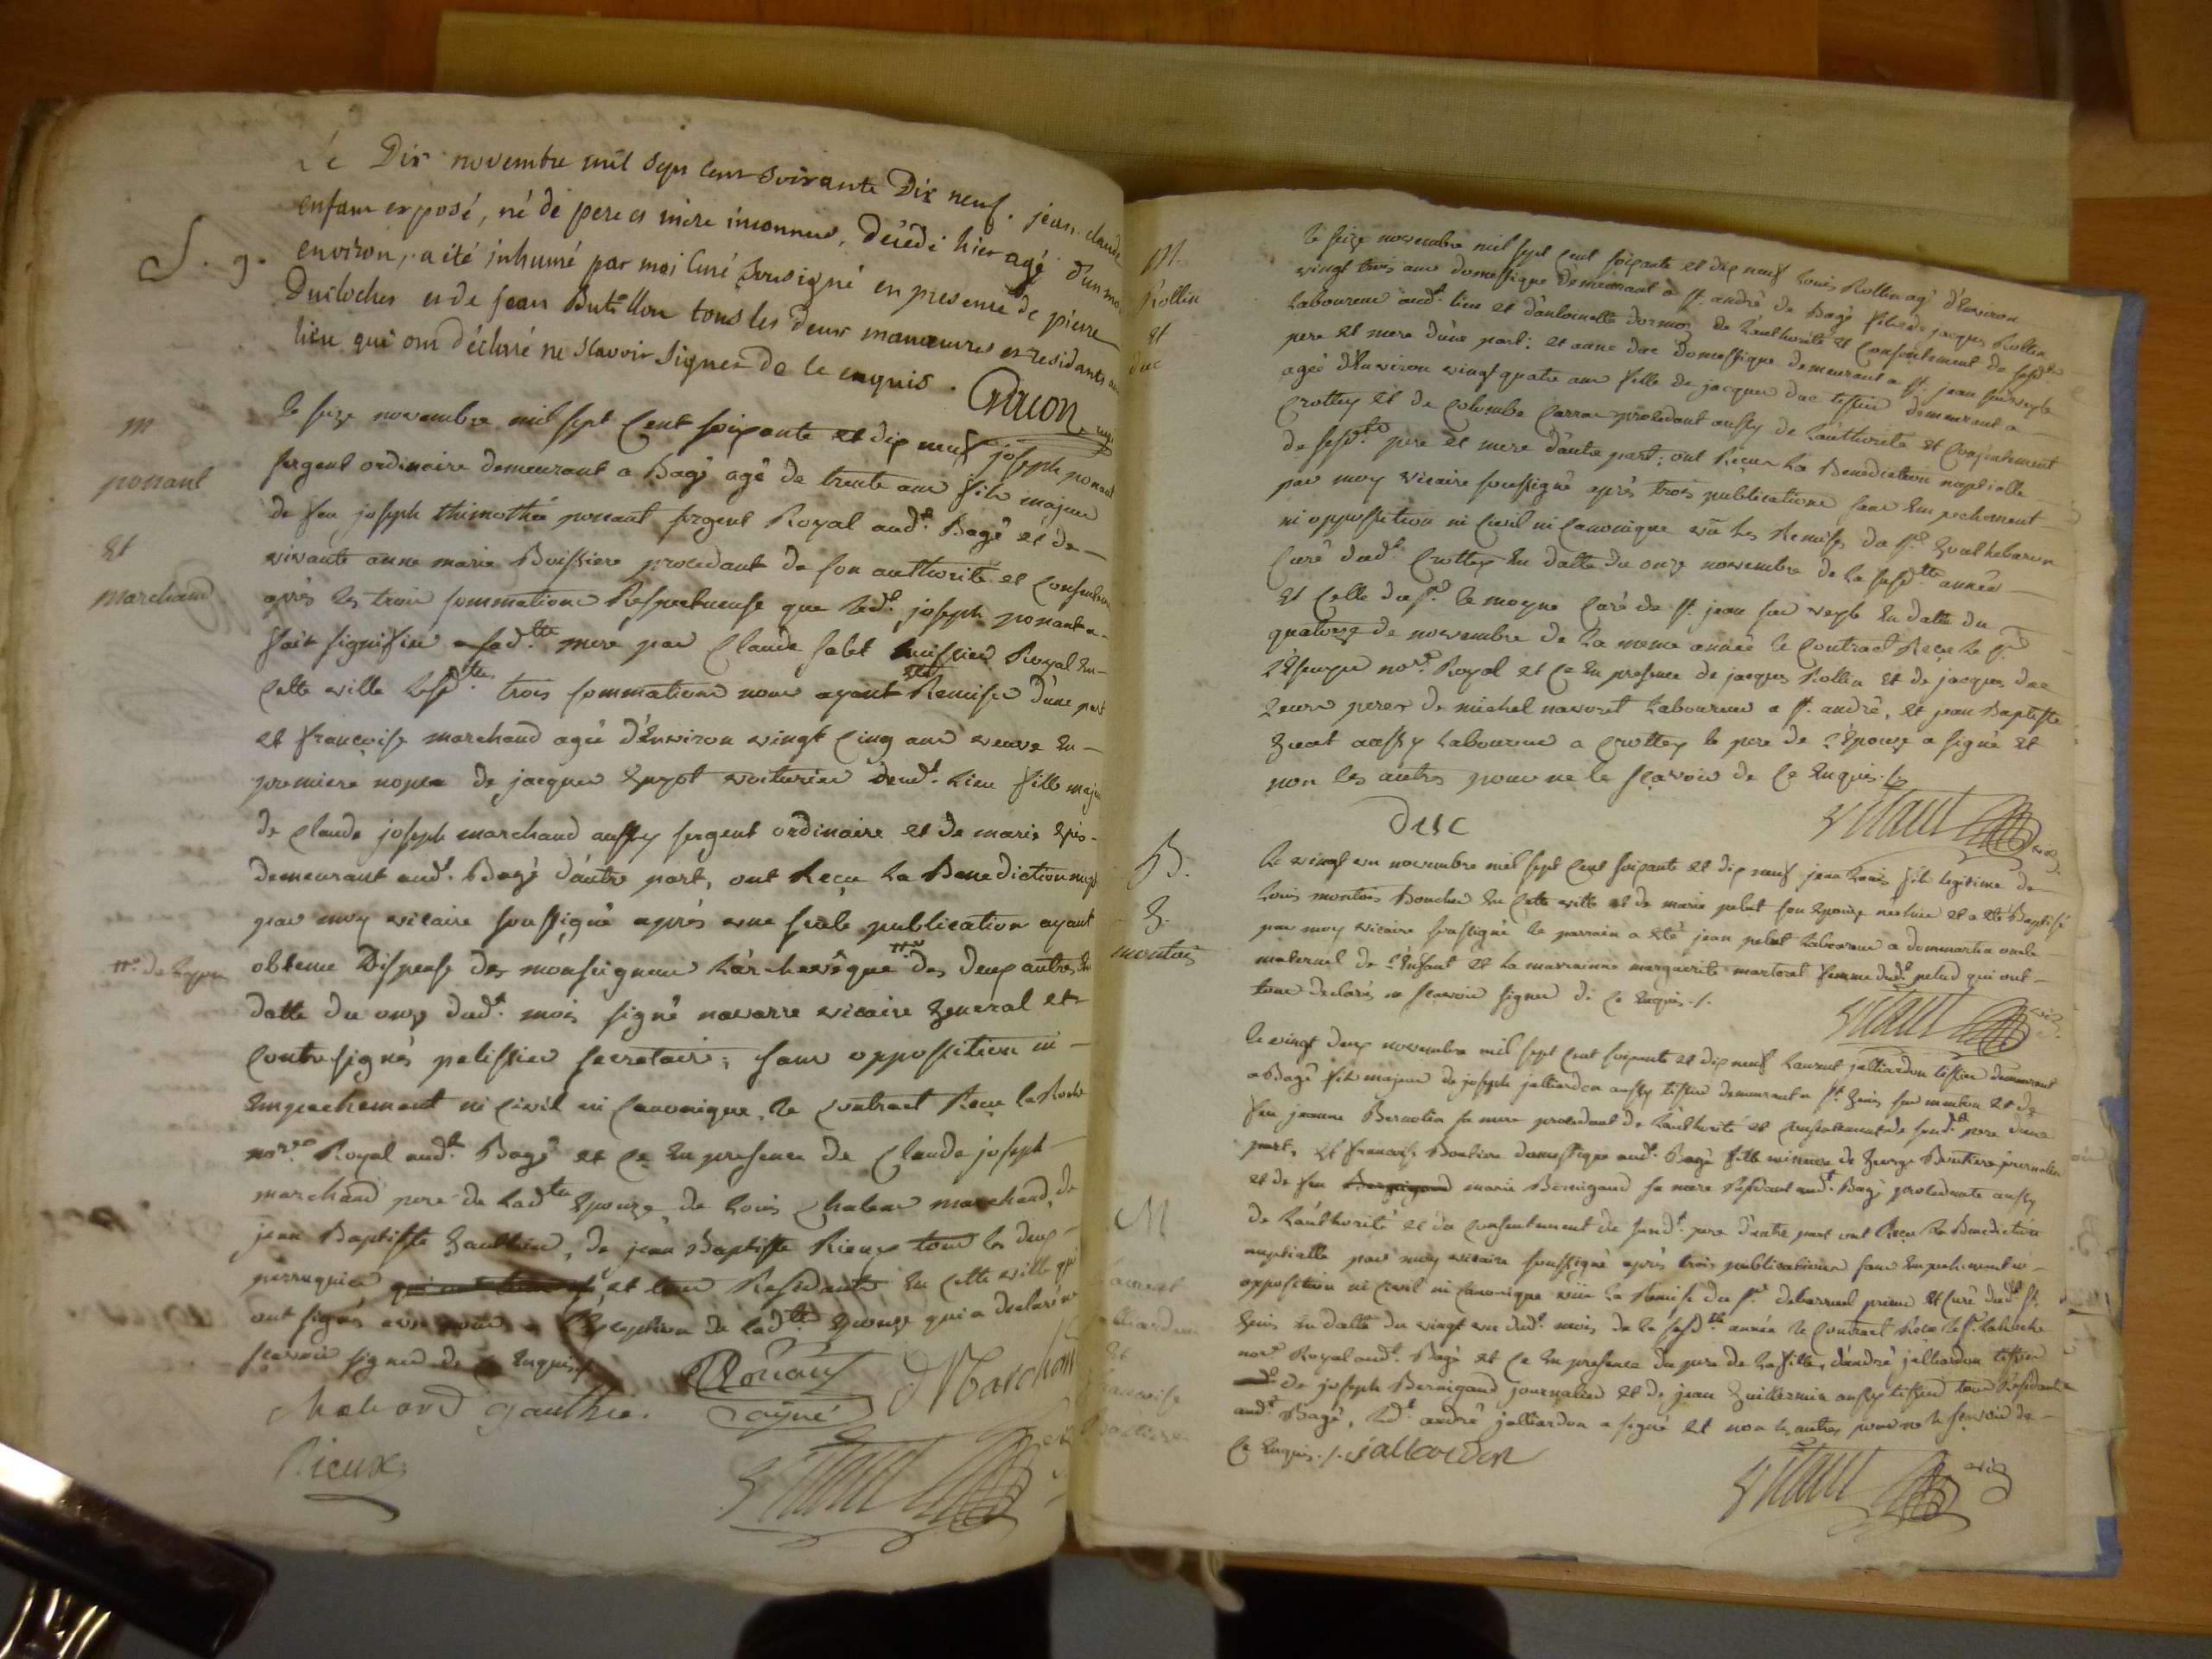 Le Dix novembre mil sept cent soixante Dix neuf. jean claude
enfant exposé, né de pere et mère inconnus, décédé hier agé d'un mois
S. 9. environ, a été inhumé par moi Curé soussigné en presence de pierre
Duclocher et de jean Butillon tous les deux manœuvres et residants au
lieu qui ont déclaré ne sçavoir signer de ce enquis.
m
ponant
Et
marchand
le seize novembre mil sept Cent soixante et dix neuf joseph ponant
sergent ordinaire demeurant a Bagé agé de trente ans fils majeur
de feu joseph thimothée ponant sergent Royal aud.t Bagé et de
vivante anne marie Buissiere procedant de son authorité et Consentement
après les trois sommations Respectueuse que led.t joseph ponant a
fait signifier a sad.tte mere par Claude huissier Royal En
Cette ville lesd.ttes trois sommations nous ayant Eté Remises d'une part
et françoise marchand agée d'Environ vingt Cinq ans veuve En
premiere nopce de jacques voiturier dud.t lieu fille majeure
de Claude joseph marchand aussy sergent ordinaire et de marie
demeurant aud.t Bagé d'autre part, ont Reçu la Benediction nupt
par moy vicaire soussigné après une seule publication ayant
obtenu Dispense de monseigneur l'archevêque des deux autres En
datte du onze dud.t mois signé navarre vicaire General et
Contresignés pelissier secretaire; sans opposition ni
Empechement ni Civil ni Canonique, le Contract Reçu la Roche
no.re Royal aud.t Bagé et Ce En presence de Claude joseph
marchand pere de lad.tte Epouze, de Louis marchand, de
jean Baptiste Gauthier, de jean Baptiste Rieux tous les deux
perruquier et tous Residants En Cette ville qui
ont signés avec nous a l'Exception de lad.tte Epouze qui a declaré ne
sçavoir signer de Ce Enquis./.
Ponant
ainé
Marchand
gauthier
Rieux
M.
Rollin
et
duc
le seize novembre mil sept Cent soixante et dix neuf Louis Rollin agé d'Environ
vingt trois ans domestique demeurant a st. andré de Bagé fils de jacques Rollin
Laboureur aud.t lieu et d'antoinette de l'authorité et Consentement de sesd.ts
pere et mere d'une part; et anne duc domestique demeurant a st. jean sur veyle
agée d'Environ vingt quatre ans fille de jacques duc tissier demeurant a
Crottey et de Colombe Carrae procedant aussy de l'authorité et Consentement
de sesd.ts pere et mere d'autre part; ont Reçu la Benediction nuptialle
par moy vicaire soussigné après trois publications sans Empechement
ni opposition ni Civil ni Canonique vu les Remises du sr.
Curé dud.t Crottey En datte du onze novembre de la susd.tte année
Et Celle du sr. le moyne Curé de st. jean sur veyle En datte du
quatorze de novembre de la meme année le Contract Reçu le sr
no.re Royal et Ce En presence de jacques Rollin et de jacques duc
Leurs peres de michel navoret Laboureur a st. andré, et jean Baptiste
aussy Laboureur a Crottey le pere de l'Epouze a signé et
non les autres pour ne le sçavoir de Ce Enquis./.
duc
B.
montois
le vingt un novembre mil sept Cent soixante et dix neuf jean Louis fils legitime de
Louis montois Boucher En Cette ville et de marie pelut son Epouze né hier et a été Baptisé
par moy vicaire soussigné le parrain a été jean pelut Laboureur a dommartin oncle
maternel de l'Enfant et la marrainne marguerite martoret femme dud.t pelud qui ont
tous declarés ne sçavoir signer de Ce Enquis./.
M
Laurent
jalliardon
Et
francoise
Boutiere
le vingt deux novembre mil sept Cent soixante et dix neuf Laurent jalliardon tissier demeurant
a Bagé fils majeur de joseph jalliardon aussy tissier demeurant a st. Genis sur menton et de
feu jeanne Bernolin sa mere procedant de l'authorité et Consentement de sond.t pere d'une
part, Et francoise Boutiere domestique aud.t Bagé fille mineure de George Boutiere journalier
et de feu marie Bernigaud sa mere Residant aud.t Bagé procedante aussy
de l'authorité et du Consentement de sond.t pere d'autre part ont Reçu la Benediction
nuptialle par moy vicaire soussigné après trois publications sans Empechement ni
opposition ni Civil ni Canonique vüe la Remise du sr. debarruel prieur et Curé dud.t st.
Genis En datte du vingt un dud.t mois de la susd.tte année le Contract Reçu le sr. laRoche
no.re Royal aud.t Bagé et Ce En presence du pere de la fille, d'andré jalliardon tissier
de joseph Bernigaud journalier et de jean Guillermin aussy tissier tous Residants
aud.t Bagé, led.t andré jalliardon a signé et non les autres pour ne le sçavoir de
Ce Enquis./. jalliardon